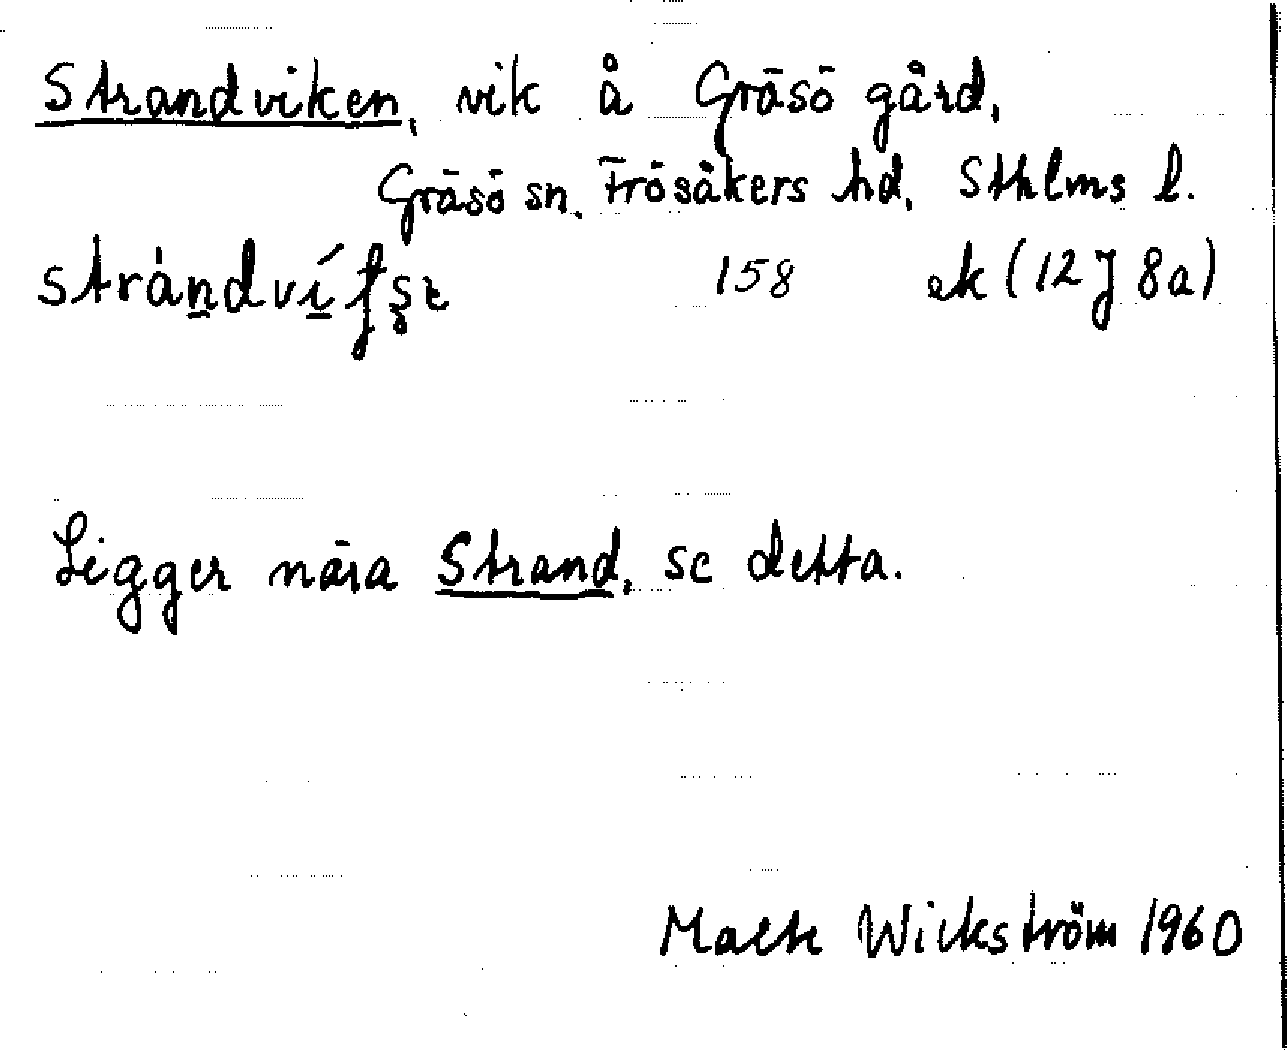 Strandviken, vik å Gräsö gård,
Gräsö sn, Frösåkers hd, Sthlms l.
158 ek (12 J 8a)
Ligger nära Strand, se detta.
Wickström 1960